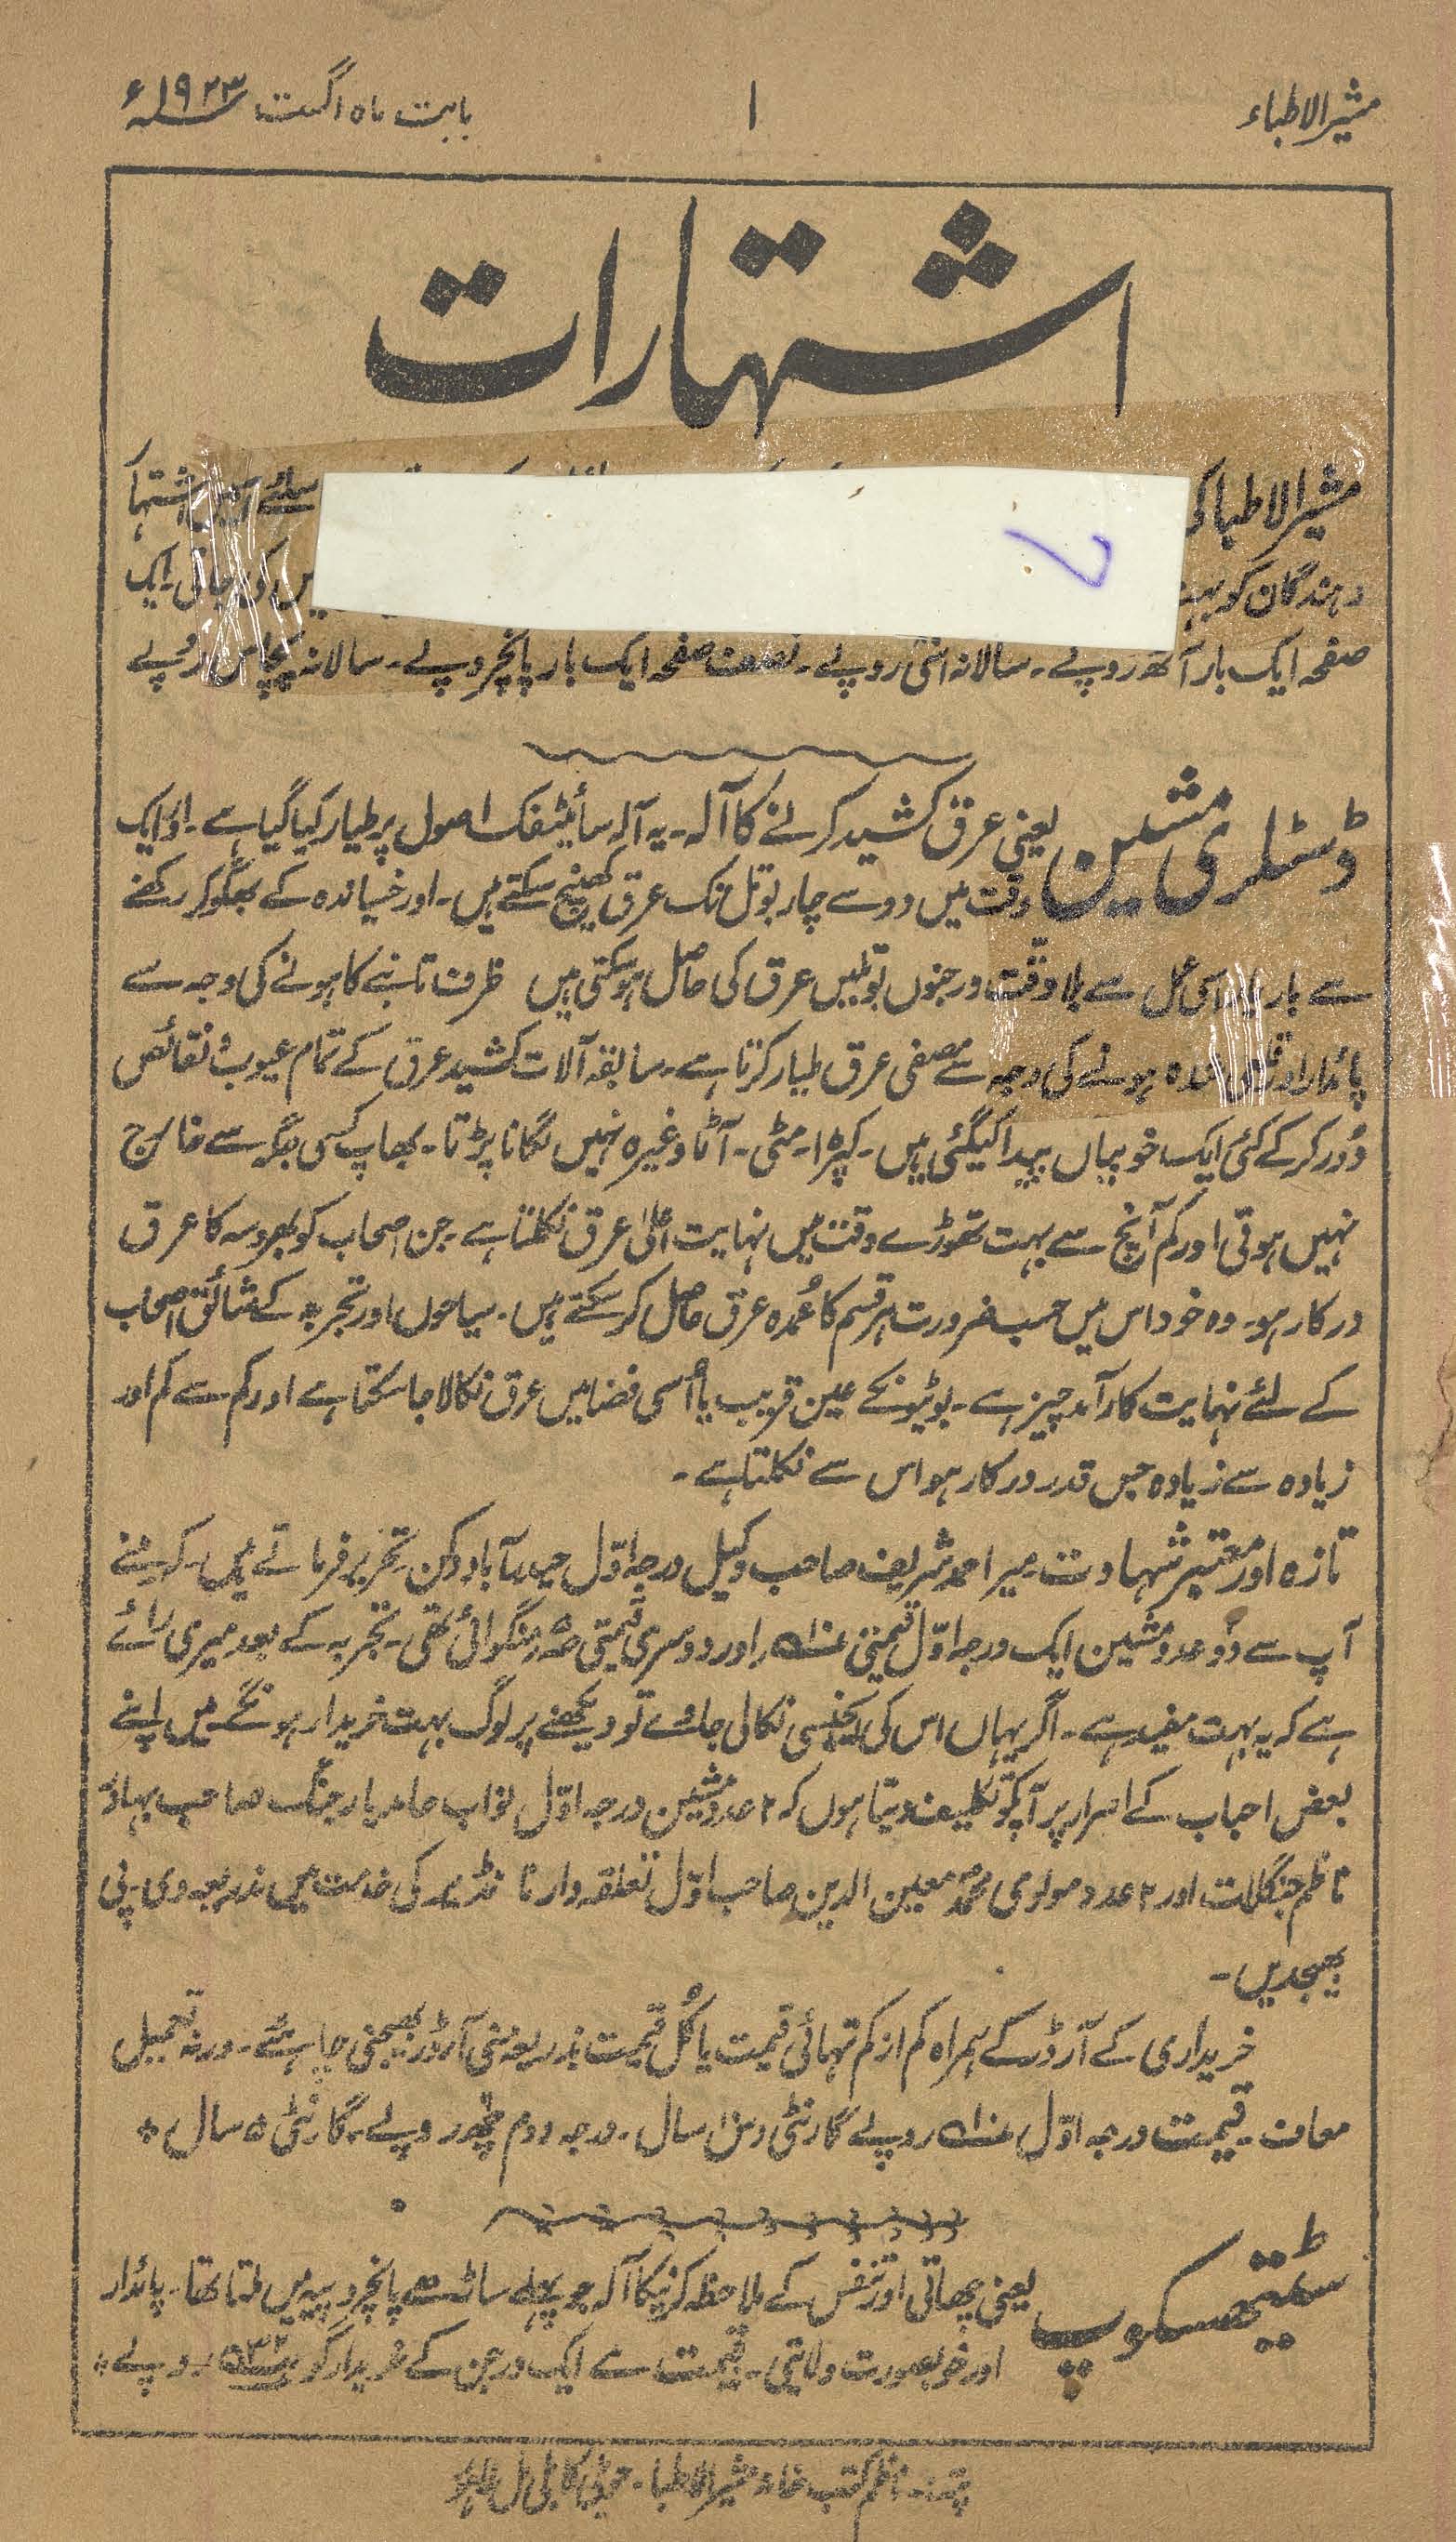 مشیرالاطباء
۱
بابت ماہ اگست ۱۹۲۳ء
اشتہارات
مشیرالاطبا کی سلئے اشتہا
دہندگان کو کی جاتی۔ ایک
صفحہ ایک بار آٹھ روپے۔ سالانہ اسّی روپے۔ نصف صفحہ ایک بار پانچروپے۔ سالانہ پچاس روپے
ڈسٹلری مشین یعنی عرق کشید کرنے کا آلہ۔ یہ آلہ سائنٹیفک اصول پر طیار کیا گیا ہے۔ اور ایک
وقت میں دو سے چار بوتل تک عرق کھینچ سکتے ہیں۔ اور خیساندہ کے بھگو کر رکھنے
سے بار بار اسی عمل سے بلا وقت درجنوں بوتلیں عرق کی حاصل ہو سکتی ہیں ظرف تانبے کا ہونے کی وجہ سے
پائدار اور قلعی عمدہ ہونے کی وجہ سے مصفی عرق طیار کرتا ہے۔ سابقہ آلات کشید عرق کے تمام عیوب و نقائص
دُور کر کے کئی ایک خوبیاں پیدا کیگئی ہیں۔ کپڑا۔ مٹی۔ آٹا وغیرہ نہیں لگانا پڑتا۔ بھاپ کسی جگہ سے خارج
نہیں ہوتی اور کم آنچ سے بہت تھوڑے وقت میں نہایت اعلیٰ عرق نکلتا ہے۔ جن اصحاب کو بھروسہ کا عرق
درکار ہو۔ وہ خود اس میں حسب ضرورت ہر قسم کا عُمدہ عرق حاصل کر سکتے ہیں۔ سیاحوں اور تجربہ کے شائق اصحاب
کے لئے نہایت کارآمد چیز ہے۔ بوٹیونکے عین قریب یا اُسی فضا میں عرق نکالا جا سکتا ہے اور کم سے کم اور
زیادہ سے زیادہ جس قدر درکار ہو اس سے نکلتا ہے۔
تازہ اور معتبر شہادت۔ میر احمد شریف صاحب وکیل درجہ اوّل حیدرآباد دکن۔ تحریر فرماتے ہیں۔ کہ مینے
آپ سے دُو عدد مشین ایک درجہ اوّل قیمتی اور دوسری قیمتی منگوائی تھی۔ تجربہ کے بعد میری رائے
ہے کہ یہ بہت مفید ہے۔ اگر یہاں اس کی ایجنسی نکالی جاوے تو دیکھنے پر لوگ بہت خریدار ہونگے۔ میں اپنے
بعض احباب کے اصرار پر آپکو تکلیف دیتا ہوں کہ ۲ عدد مشین درجہ اوّل نواب حامد یار جنگ صاحب بہادر
ناظم جنگلات اور ۲ عدد مولوی محمد معین الدین صاحب اوّل تعلقہ دار ناندیڑ کی خدمت میں بذریعہ وی۔ پی
بھیجدیں۔
خریداری کے آرڈر کے ہمراہ کم از کم تہائی قیمت یا کُل قیمت بذریعہ منی آرڈر بھیجنی چاہئے۔ ورنہ تعمیل
معاف۔ قیمت درجہ اوّل روپے گارنٹی دس ۱۰ سال۔ درجہ دوم روپے۔ گارنٹی ۵ سال
سٹیتھسکوپ یعنی چھاتی اور تنفس کے ملاحظہ کرنیکا آلہ جو پہلے ساڑھے پانچروپیہ میں ملتا تھا۔ پائدار
اور خوبصورت ولایتی۔ قیمت ایک درجن کے خریدار کو روپے
پتہ:۔ ناظم کتب خانہ مشیرالاطبا۔ حویلی کابلی مل لاہور